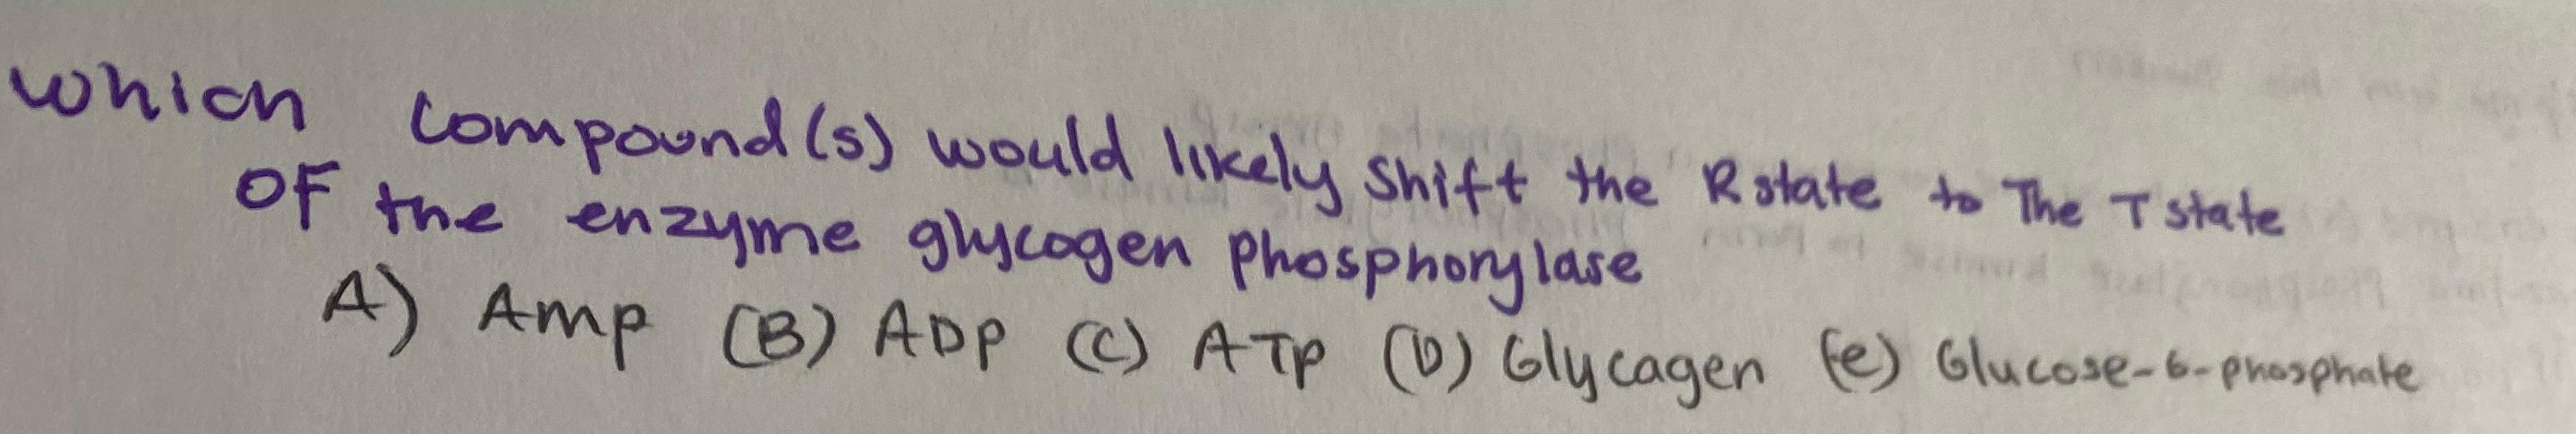 which compound(s) would likely shift the R state to The T state
OF the enzyme glycogen phosphorylase
A) Amp (B) ADP (C) ATP (D) Glycagen (e) Glucose-6-phosphate